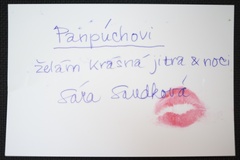 Panpúchovi
želám krásná jitra & noci
Sára Saudková